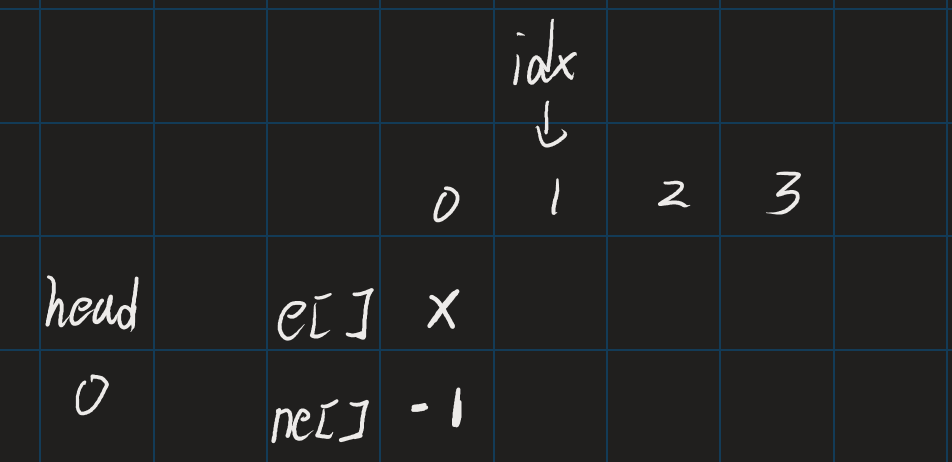 idx
↓
0 1 2 3
head e[] x
0 ne[] -1